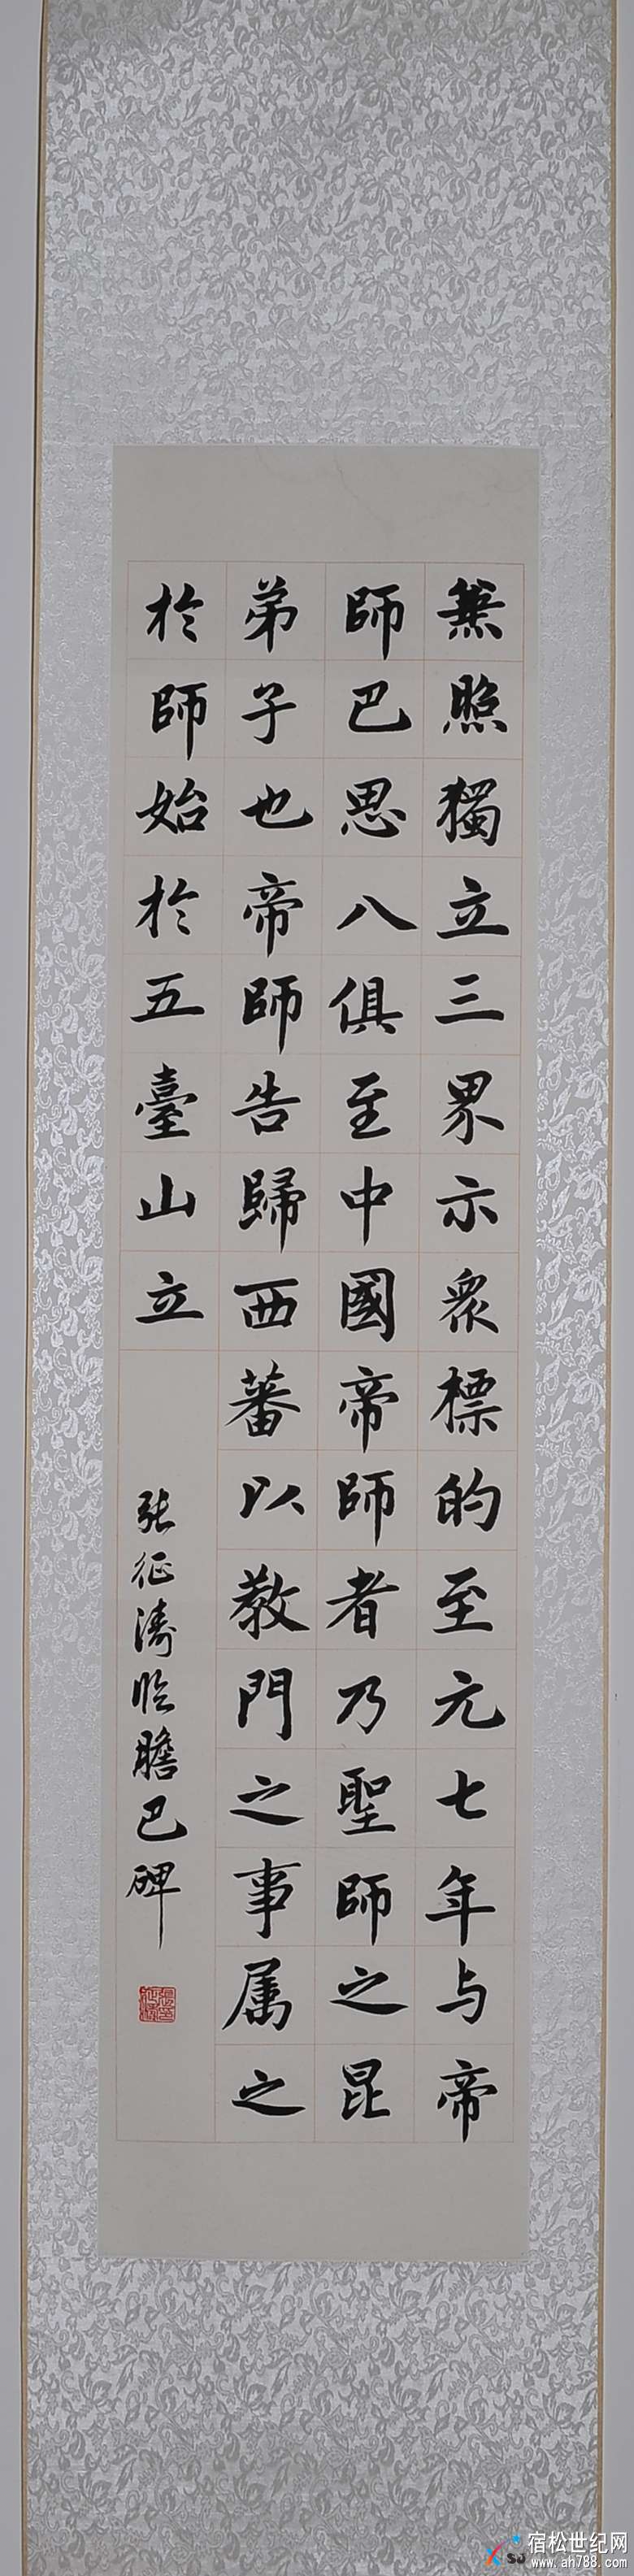 無照獨立三界示衆標的至元七年与帝
師巴思八俱至中國帝師者乃聖師之昆
弟子也帝師告歸西蕃以教門之事属之
於師始於五臺山立
张征濤临膽巴碑
宿松世纪网
www.ah788.com